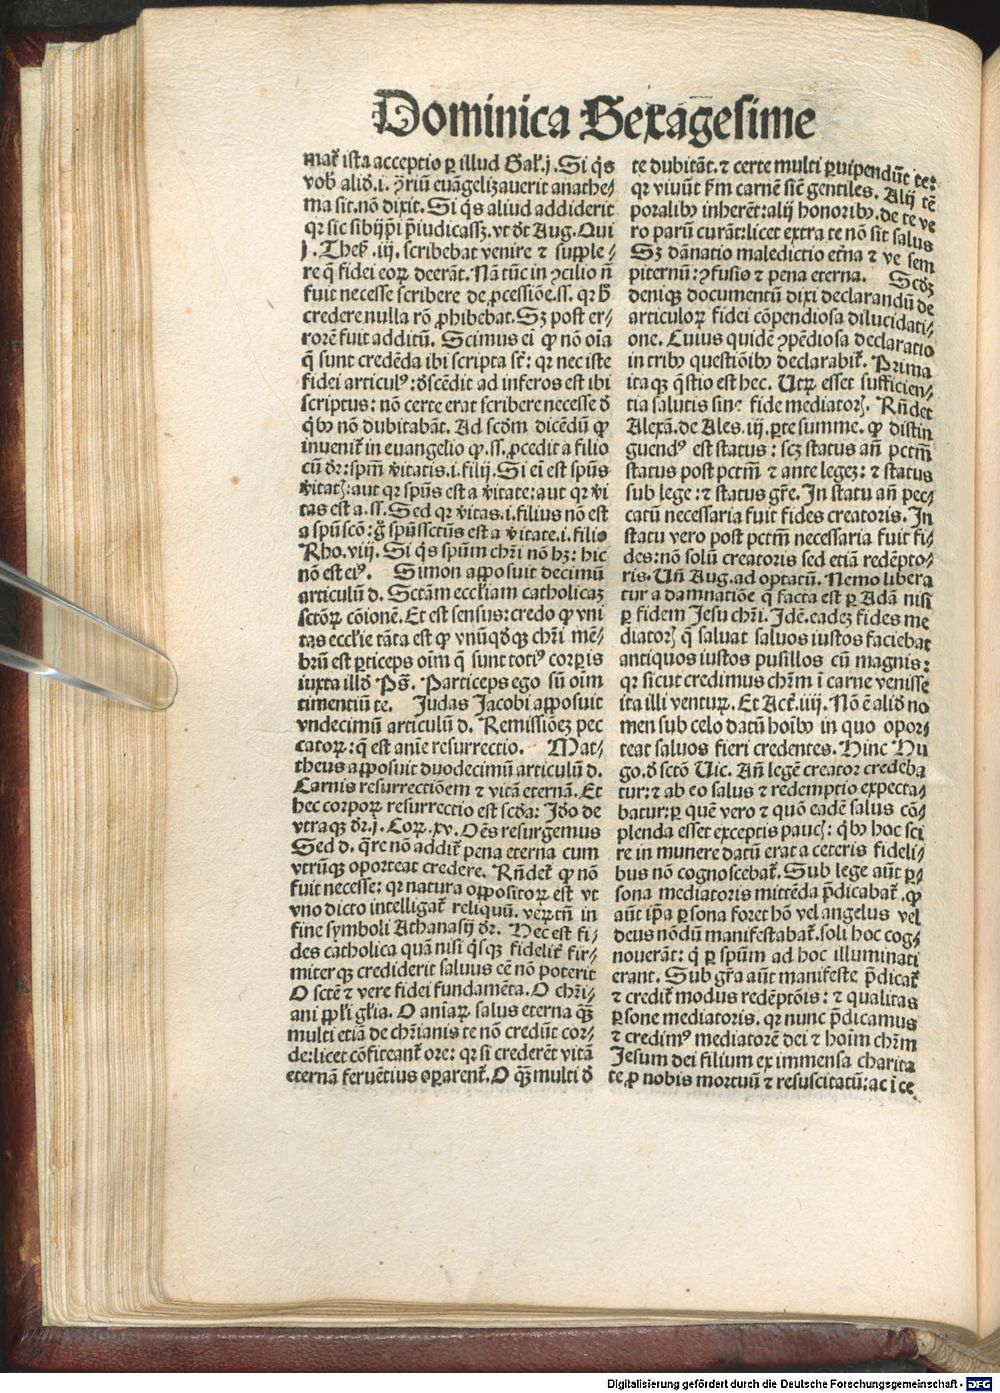 Dominica Sexagesime
mat᷑ ista acceptio ꝑ illud Gal᷑.j. Si q̇s
vob̄ aliḋ.i. ꝯriū euāgelizauerit anathe⸗
ma sit. nō dixit. Si q̇s aliud addiderit
qꝛ sic sibijp̄i p̄iudicassꝫ. vt dr̄t Aug. Qui
j. Thes̄ .iij. scribebat venire ⁊ supple⸗
re q̄ fidei eoꝝ deerāt. Nā tūc in ꝯcilio ñ
fuit necesse scribere de ꝓcessiōe.ss. qꝛ h̄
credere nulla rō ꝓhibebat. Sꝫ post er⸗
rorē fuit additū. Scimus ei̅ ꝙ nō oīa
q̄ sunt credēda ibi scripta st̄: qꝛ nec iste
fidei articulꝰ: ðscēdit ad inferos est ibi
scriptus: nō certe erat scribere necesse ð
q̇bꝰ nō dubitabāt. Ad scḋm dicēdū ꝙ
inuenit᷑ in euangelio ꝙ .ss. ꝓcedit a filio
cū dr̄: spm̄ v̄itatis.i. filij. Si ei̅ est spūs
v̄itatꝭ: aut qꝛ spūs est a v̄itate: aut qꝛ v̄i
tas est a .ss. Sed qꝛ v̄itas.i. filius nō est
a spū scō: g̊ spūssctūs est a v̄itate.i. filio
Rho. viij. Si q̇s spūm chr̄i nō hꝫ: hic
nō est eiꝰ. Simon apposuit decimū
articulū d. Sctām eccl̄iam catholicaꝫ
sctōꝝ cōionē. Et est sensus: credo ꝙ vni
tas eccl̄ie tāta est ꝙ vnūqḋqꝫ chr̄i mē⸗
brū est ꝑticeps oīm q̄ sunt totiꝰ corpꝑis
iuxta illḋ Ps̄. Particeps ego sū oīm
timentiū te. Judas Jacobi apposuit
vndecimū articulū d. Remissiōeꝫ pec
catoꝝ: q̄ est anīe resurrectio. Mat⸗
theus apposuit duodecimū articulū d.
Carnis resurrectiōem ⁊ vitā eternā. Et
hec corpoꝝ resurrectio est scḋa: Jḋo de
vtraqꝫ dr̄.j. Coꝝ. xv. Oēs resurgemus
Sed d. q̄re nō addit᷑ pena eterna cum
vtrūqꝫ oporteat credere. Rn̄det᷑ ꝙ nō
fuit necesse: qꝛ natura oppositoꝝ est vt
vno dicto intelligat᷑ reliquū. veꝝtn̄ in
fine symboli Athanasij dr̄. Hec est fi⸗
des catholica quā nisi q̇sqꝫ fidelit᷑ fir⸗
miterqꝫ crediderit saluus cē nō poterit
O sctē ⁊ vere fidei fundamēta. O chr̄i⸗
ani ppl̄i gl̄ia. O anīaꝝ salus eterna qꝫ̄
multi etiā de chr̄ianis te nō credūt cor⸗
de: licet cōfiteant᷑ ore: qꝛ si crederēt vitā
eternā feruētius oꝑarent᷑. O qꝫ̄ multi ð
te dubitāt. ⁊ certe multi ꝑuipendūt te:
qꝛ viuūt ẜm carnē sic̄ gentiles. Alij tē
poralibꝰ inherēt: alij honoribꝰ. de te ve
ro parū curāt: licet extra te nō sit salus
Sꝫ dānatio maledictio et̄na ⁊ ve sem
piternū: ꝯfusio ⁊ pena eterna. Scḋꝫ
deniqꝫ documentū dixi declarandū de
articuloꝝ fidei cōpendiosa dilucidati⸗
one. Cuius quidē ꝯpēdiosa declaratio
in tribꝰ questiōibꝰ declarabit᷑. Prima
itaqꝫ q̄stio est hec. Utꝝ esset sufficien⸗
tia salutis sine fide mediatorꝭ. Rn̄det
Alexā. de Ales. iij. ꝑte summe. ꝙ distin
guendꝰ est status: scꝫ status an̄ pctm̄
status post pctm̄ ⁊ ante legeꝫ: ⁊ status
sub lege: ⁊ status gr̄e. In statu an̄ pec⸗
catū necessaria fuit fides creatoris. In
statu vero post pctm̄ necessaria fuit fi⸗
des: nō solū creatoris sed etiā redēpto⸗
ris. Un̄ Aug. ad optatū. Nemo libera
tur a damnatiōe q̄ facta est ꝑ Adā nisi
ꝑ fidem Jesu chr̄i. Jdē. eadeꝫ fides me
diatorꝭ q̄ saluat saluos iustos faciebat
antiquos iustos pusillos cū magnis:
qꝛ sicut credimus chr̄m ī carne venisse
ita illi venturꝝ. Et Act᷑. iiij. Nō ē aliḋ no
men sub celo datū hoībꝰ in quo opor⸗
teat saluos fieri credentes. Hinc Hu
go. ð sctō Uic. An̄ legē creator credeba
tur: ⁊ ab eo salus ⁊ redemptio expecta⸗
batur: ꝑ quē vero ⁊ quō eadē salus cō⸗
plenda esset exceptis paucꝭ: q̇bꝰ hoc sci
re in munere datū erat a ceteris fideli⸗
bus nō cognoscebat᷑. Sub lege aūt ꝑ⸗
sona mediatoris mittēda p̄dicabat᷑. ꝙ
aūt ip̄a ꝑsona foret hō vel angelus vel
deus nōdū manifestabat᷑. soli hoc cog⸗
nouerāt: q̇ ꝑ spūm ad hoc illuminati
erant. Sub gr̄a aūt manifeste p̄dicat᷑
⁊ credit᷑ modus redēptōis: ⁊ qualitas
ꝑsone mediatoris. qꝛ nunc p̄dicamus
⁊ credimꝰ mediatorē dei ⁊ hoīm chr̄m
Jesum dei filium ex immensa charita
te ꝓ nobis mortuū ⁊ resuscitatū: ac ī ce
Digitalisierung gefördert durch die Deutsche Forschungsgemeinschaft - DFG